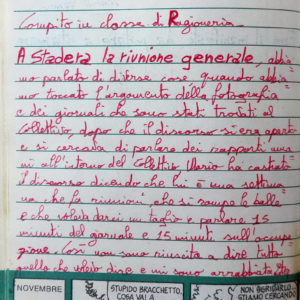 Compito in classe di Ragioneria
A Stadera la riunione generale, abbia
mo parlato di diverse cose quando abbia
mo toccato l'argomento della fotografia
e dei giornali che sono stati trovati al
Collettivo, dopo che il discorso si era aperto
e si cercava di parlare dei rapporti uma
ni all'interno del Collettivo Mario ha castrato
il discorso dicendo che lui è una settima
na che fa riunioni che si rompe le balle
e che voleva darci un taglio e parlare 15
minuti del giornale e 15 minuti sull'occupa
zione. Così non sono riuscita a dire tutto
quello che volevo dire e mi sono arrabbiata
NOVEMBRE
STUPIDO BRACCHETTO,
COSA VAI A
NON GRIDARLO,
STIAMO CERCANDO